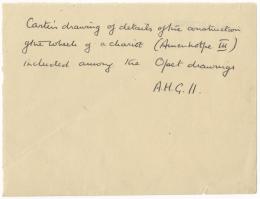 Carter's drawing of details of the construction
of the wheels of a chariot (Amenhotpe III)
included among the Opet drawings
A.H.G. 11.